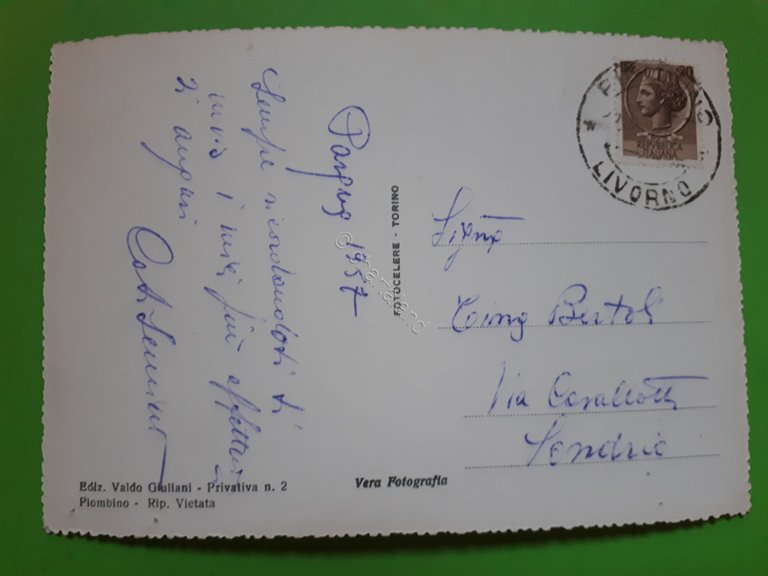 Pasqua 1957
Sempre ricordandoti ti
invio i miei più affettuosi
auguri
FOTOCELERE - TORINO
20
REPVBBLICA
ITALIANA
LIVORNO
Sig.na
Bertoli
Via Cavallotti
Sondrio
Ediz. Valdo Giuliani - Privativa n. 2
Piombino - Rip. Vietata
Vera Fotografia